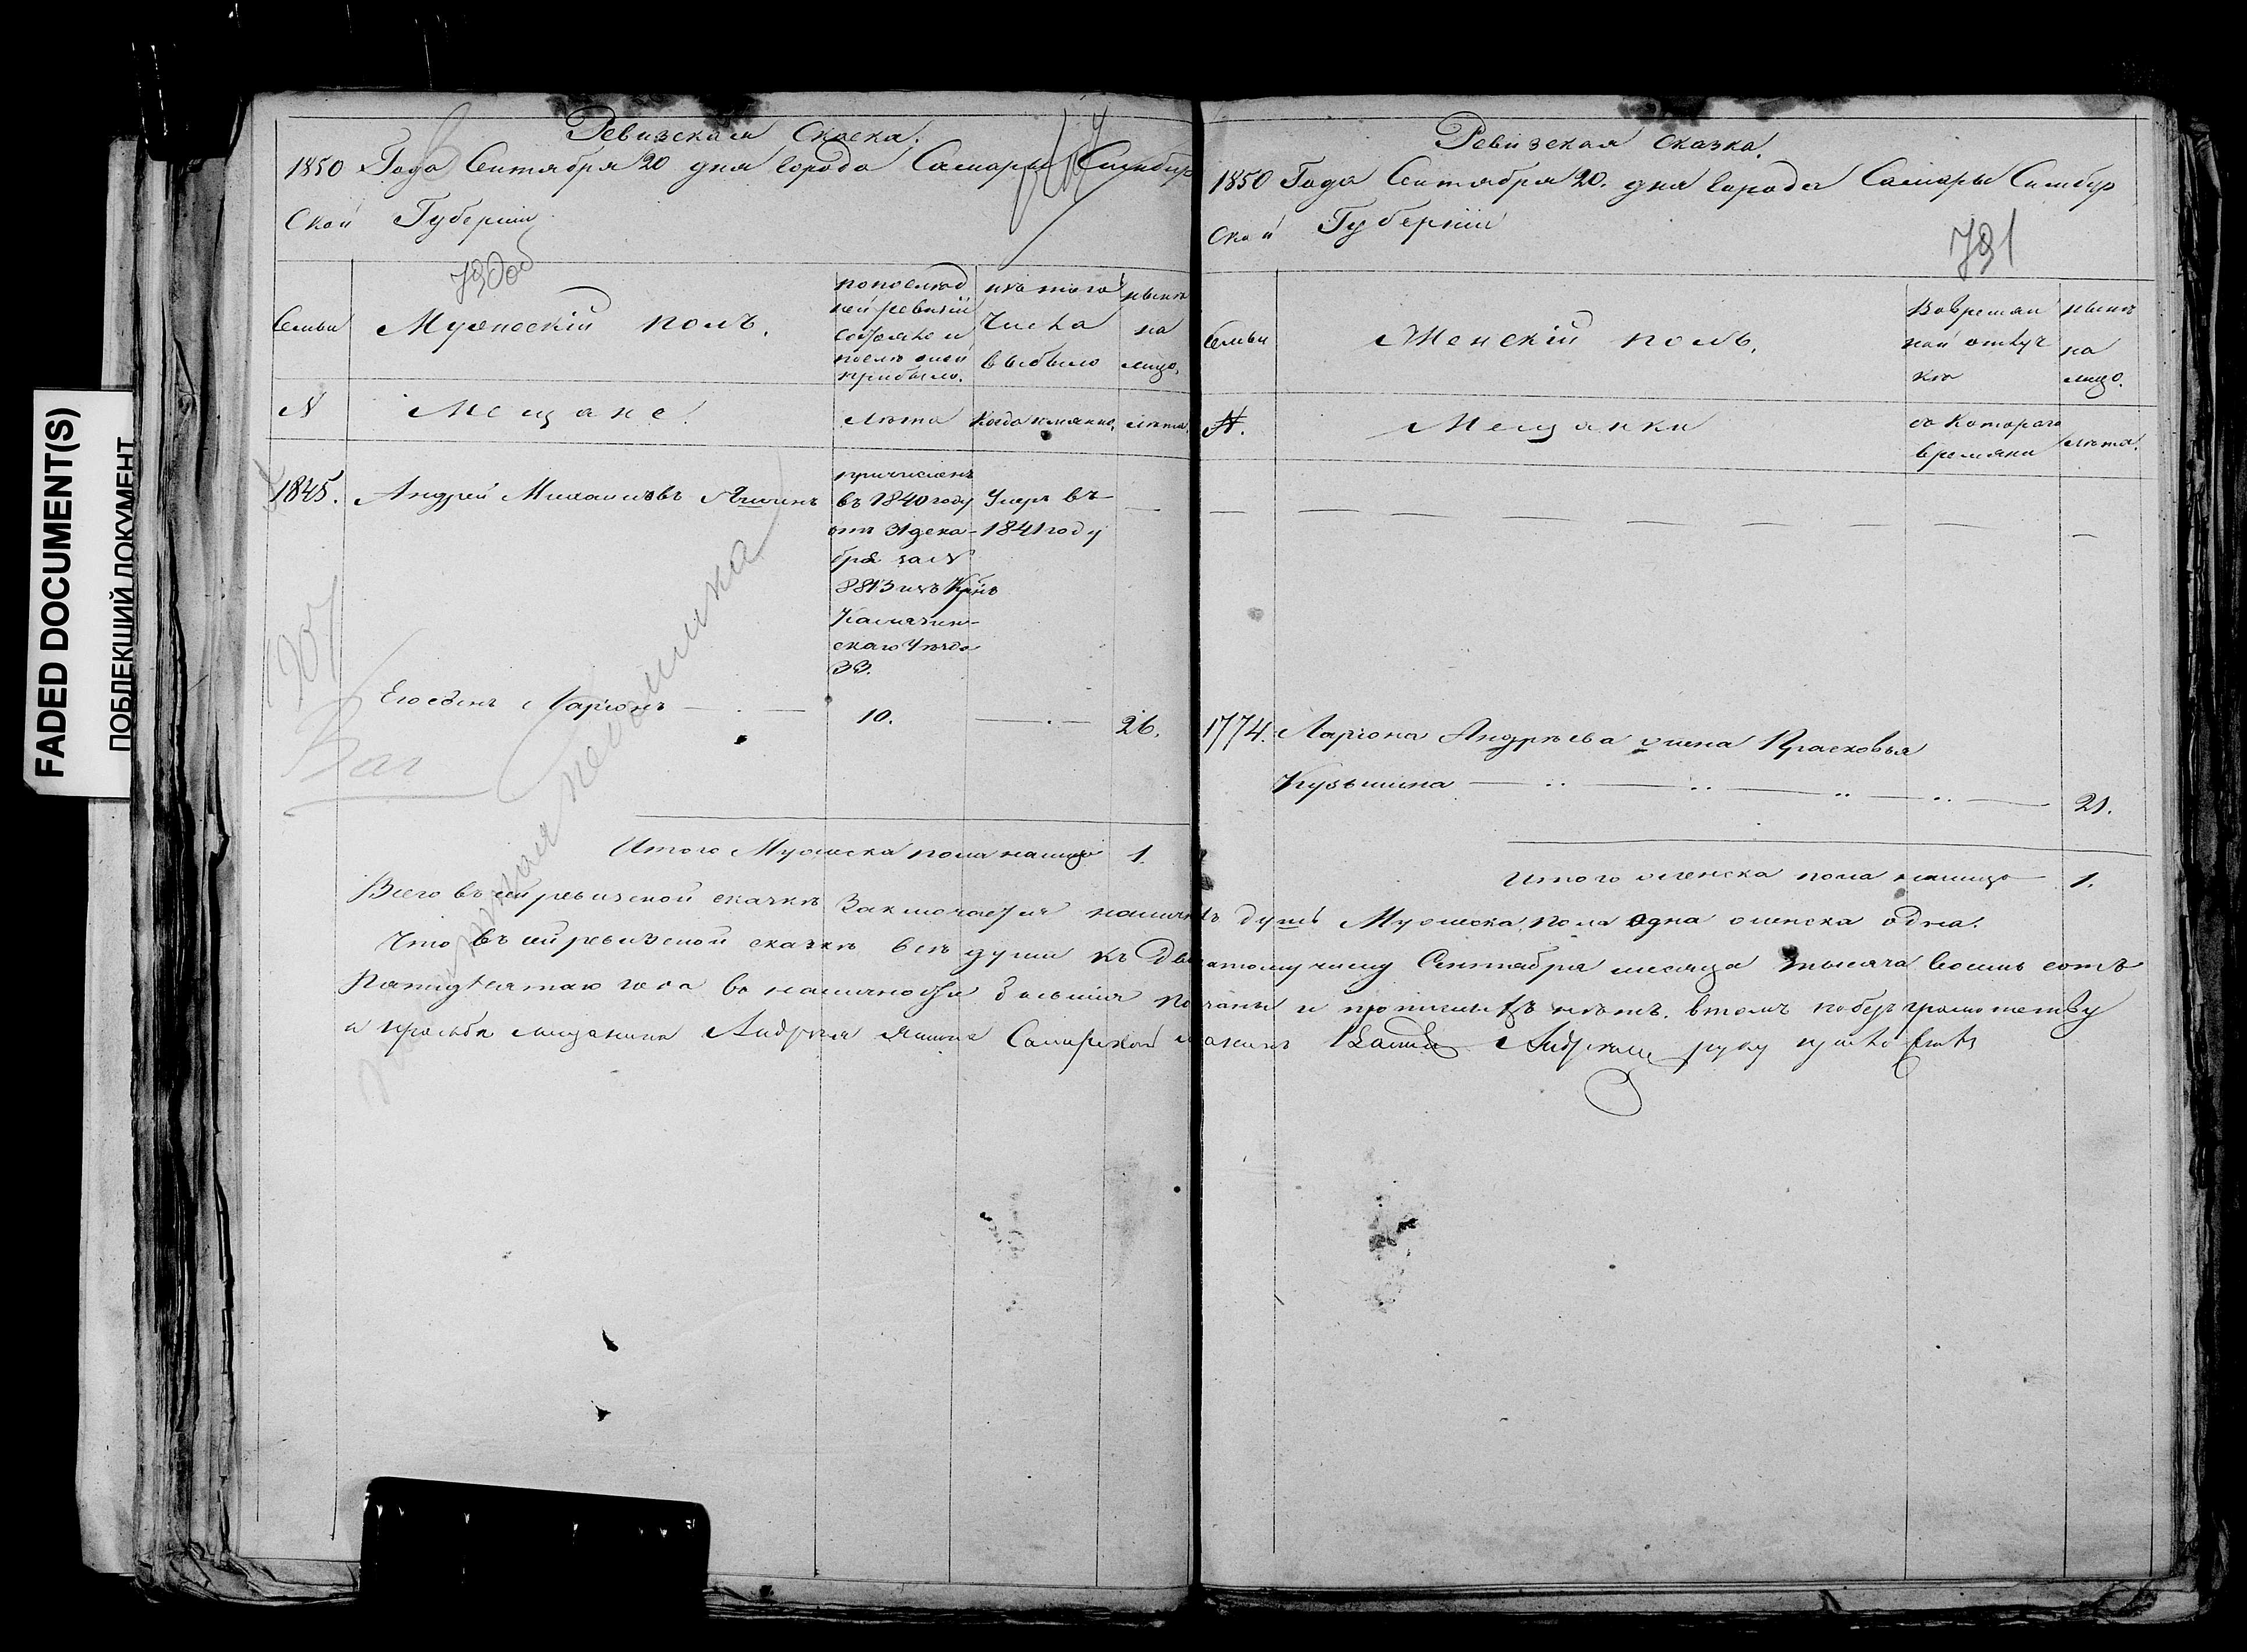 FADED DOCUMENT(S)
ПОБЛЕКШИЙ ДОКУМЕНТ
Ревизская Скаска.
1850 Года Сентября 20 дня Города Самары Симбир
Ской Губернии
790об
Семьи
Мужеский полъ.
по послед
ней ревизіи
состояло и
после оной
прибыло.
изъ того
числа
выбыло
ныне
на
лицо.
N
Мещане.
лета
когда именно.
лета.
1845.
Андрей Михаиловъ Яшинъ
причисленъ
въ 1840 году
отъ 31 дека-
бря за N
8813 изъ Крнъ
Умеръ въ
1841 году
скаго Уезда
33.
Его сынъ Ларіонъ
10.
26.
Итого Мужеска пола налицо 1.
Ревизская Сказка.
1850 Года Сентября 20. дня Города Самары Симбир
ской Губерніи
791
Семьи
Женскій полъ.
Во времян
ной отлуч
ке
ныне
на
лицо.
N.
Мещанки
съ которого
времяни
лета.
1774. Ларіона Андреева жена Прасковья
Кузьмина
21.
Итого женска пола налицо 1.
Всего въ сей ревизской сказке Заключается налицо душъ Мужеска пола одна женска одна.
Что въ сей ревизской сказке все души къ Двадцатому числу Сентября месяца тысяча восемь сотъ
Пятидесятаго года в наличности бывшия показаны и прописныхъ нетъ. в томъ по безграмотству
и прозьбе мещанина Андрея Яшина Самарской мещанинъ руку приложилъ